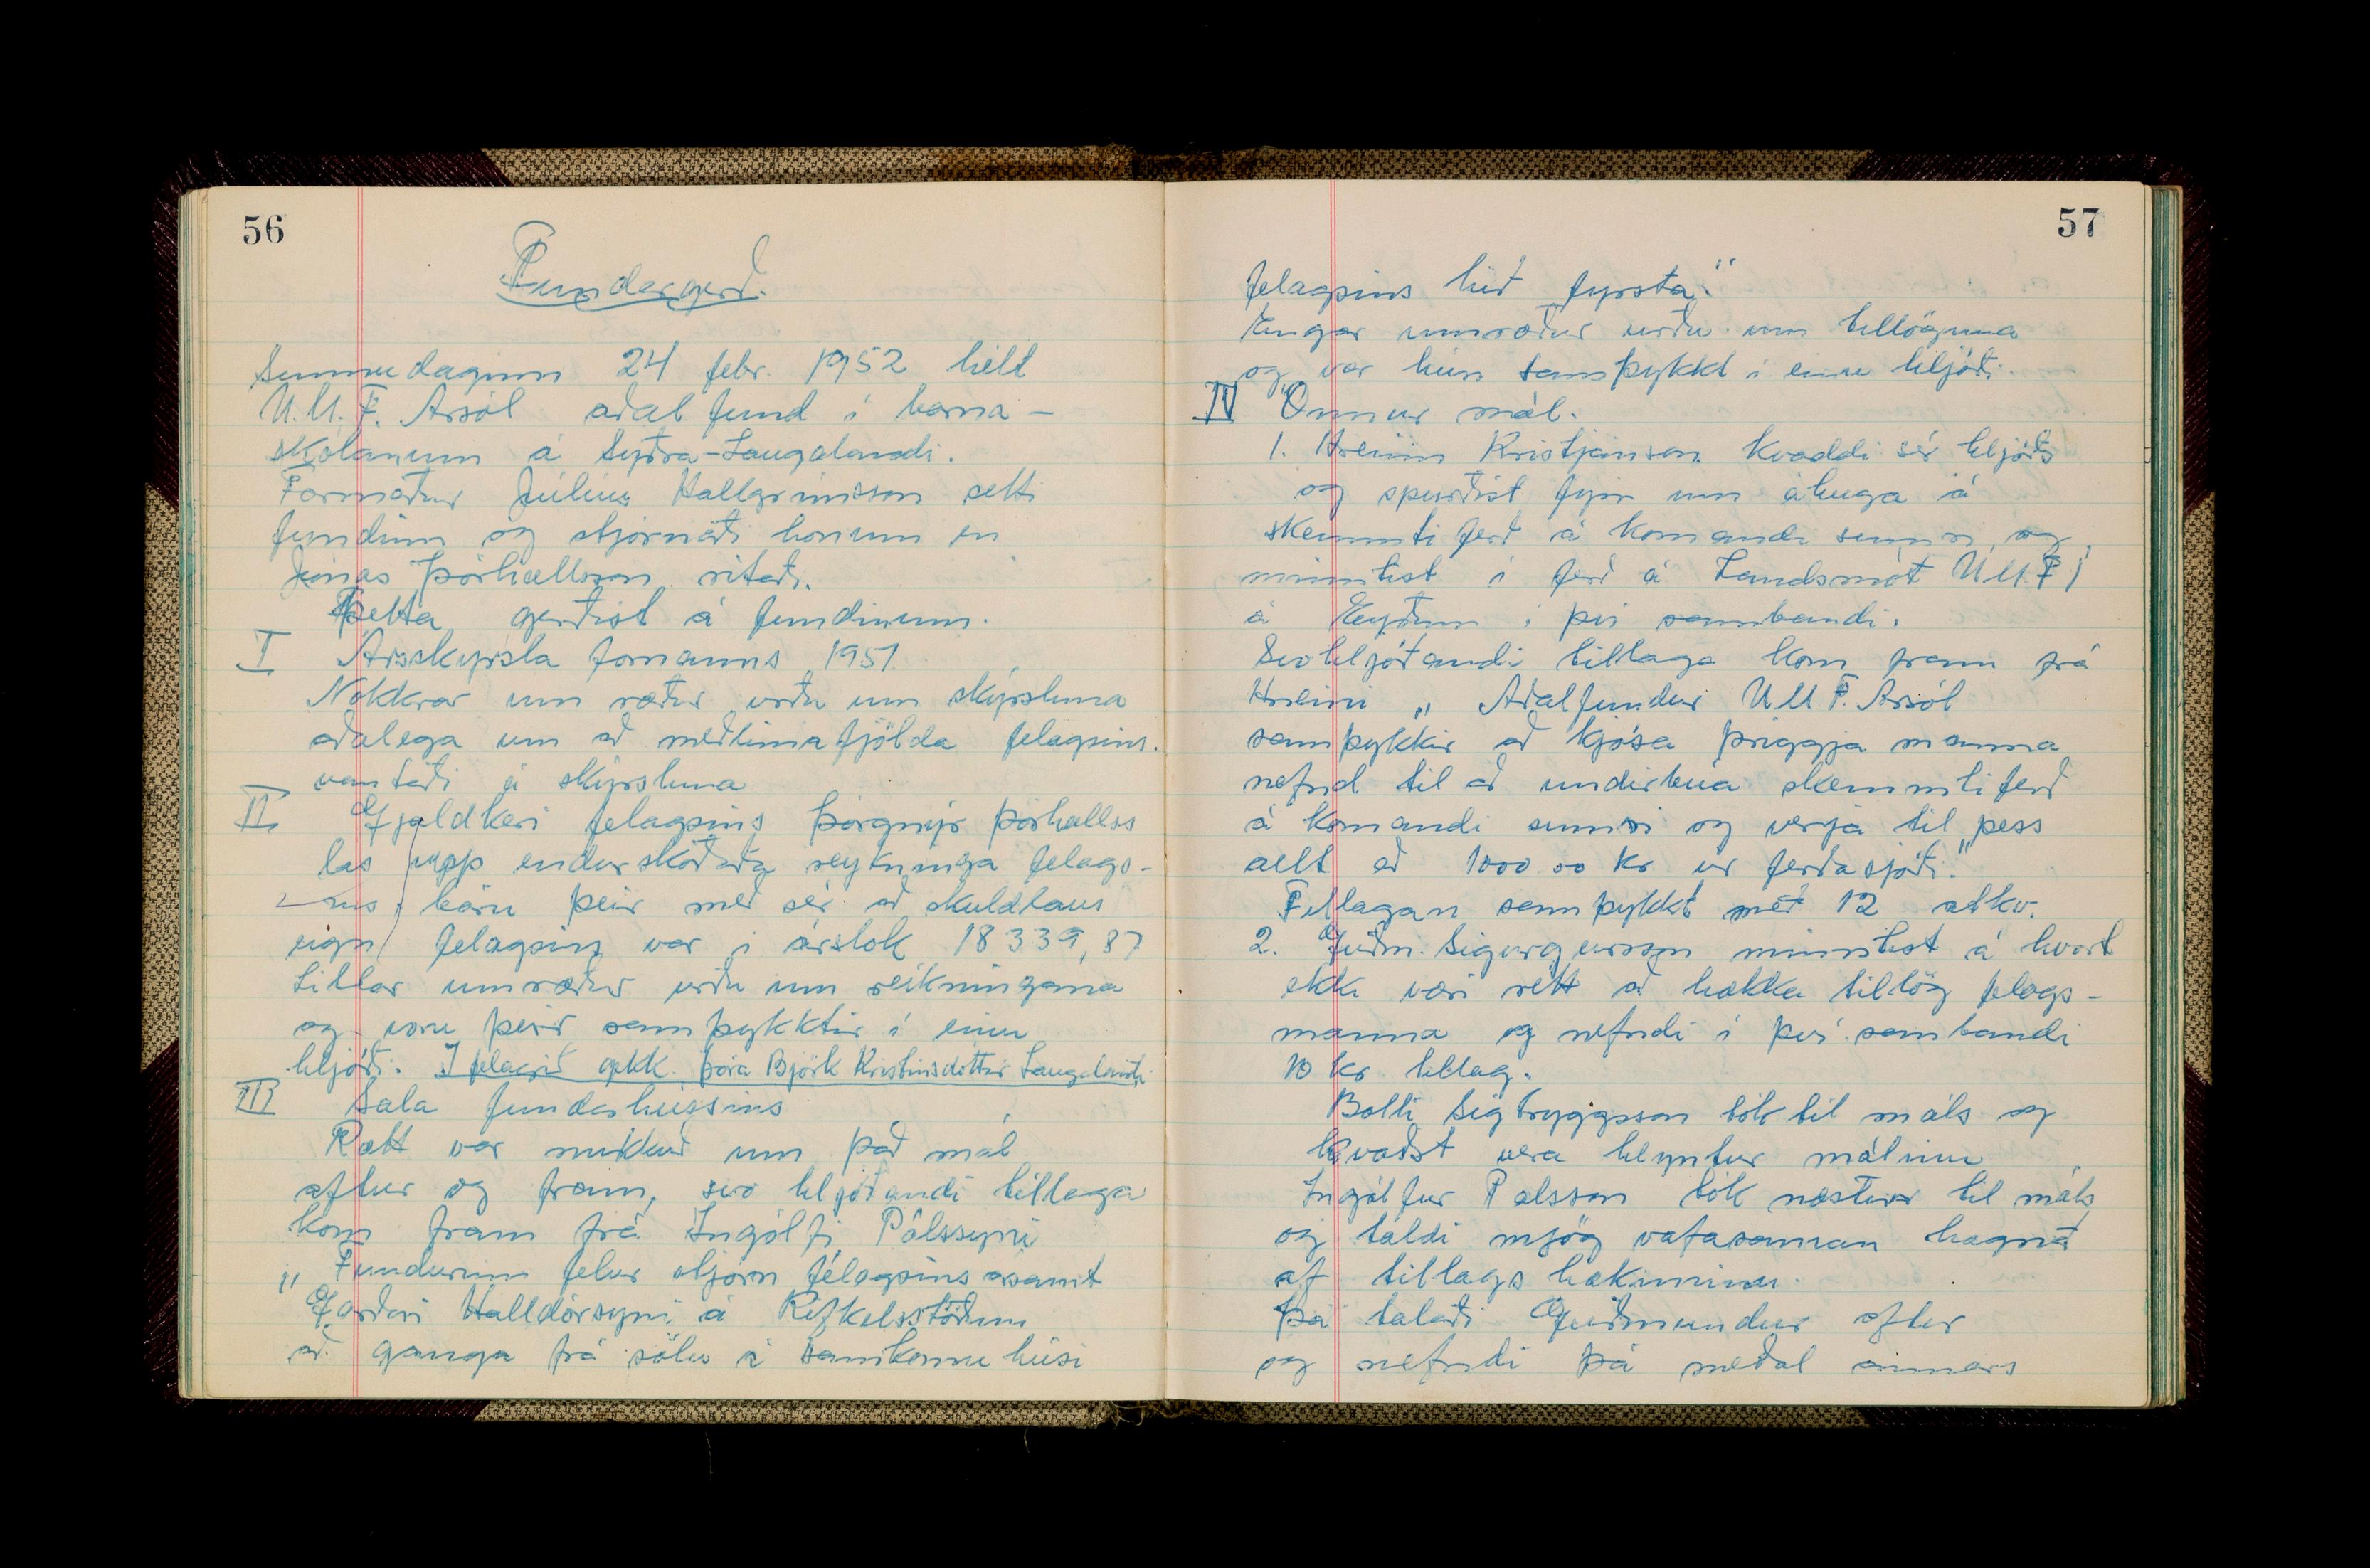 56
Fundargerð.
Sunnudaginn 24 febr. 1952 hélt
U.M.F. Arsól aðalfund í barna-
skólanum á Syðra-Laugalandi.
Formaður Júlíus Hallgrímsson setti
fundinn og stjórnaði honum en
Jónas Þórhallsson ritaði.
Þetta gerðist á fundinum.
I Arsskýrsla formanns 1951
Nokkrar umræður urðu um skýrsluna
aðalega um að meðlimafjölda felagsins
vantaði á skýrsluna
II Gjaldkeri felagsins Þórgnýr Þórhallss
las upp endurskoðaða reykninga felags-
ins, báru þeir með sér að skuldlaus
eign felagsins var í árslok 18339,87
Litlar umræður urðu um reikningana
og voru þeir samþykktir í einu
hljóði. I felagið gekk Þóra Björk Kristinsdóttir Laugalandi
III Sala fundarhúsins
Rætt var mikið um það mál
aftur og fram, svo hljóðandi tillaga
kom fram frá Ingólfi Pálssyni
„Fundurinn felur stjórn félagsins ásamt
Garðari Halldórsyni á Rifkelsstöðum
að ganga frá sölu á samkomu húsi
57
felagsins hið fyrsta."
Engar umræður urðu um tillöguna
og var hún samþykkt í einu hljóði.
IV Önnur mál.
1. Hreinn Kristjánson kvaddi sér hljóðs
og spurðist fyrir um áhuga á
skemmtiferð á komandi sumri, og
minntist í ferð á Landsmót UMFÍ
á Eyðum í því sambandi.
Svohljóðandi tillaga kom fram frá
Hreini „Aðalfundur UMF. Arsól
samþykkir að kjósa þriggja manna
nefnd til að undirbúa skemmtiferð
á komandi sumri og verja til þess
allt að 1000.00 kr úr ferðasjóði."
Tillagan samþykkt með 12 atkv.
2. Guðm. Sigurgeirsson minntist á hvort
ekki væri rétt að hækka tillög felags-
manna og nefndi í því sambandi
10 kr tillag.
Bolli Sigtryggsson tók til máls og
kvaðst vera hlyntur málinu
Ingólfur Palsson tók næstur til máls
og taldi mjög vafasaman hagnað
af tillags hækuninni.
Þá talaði Guðmundur aftur
og nefndi þá meðal annars